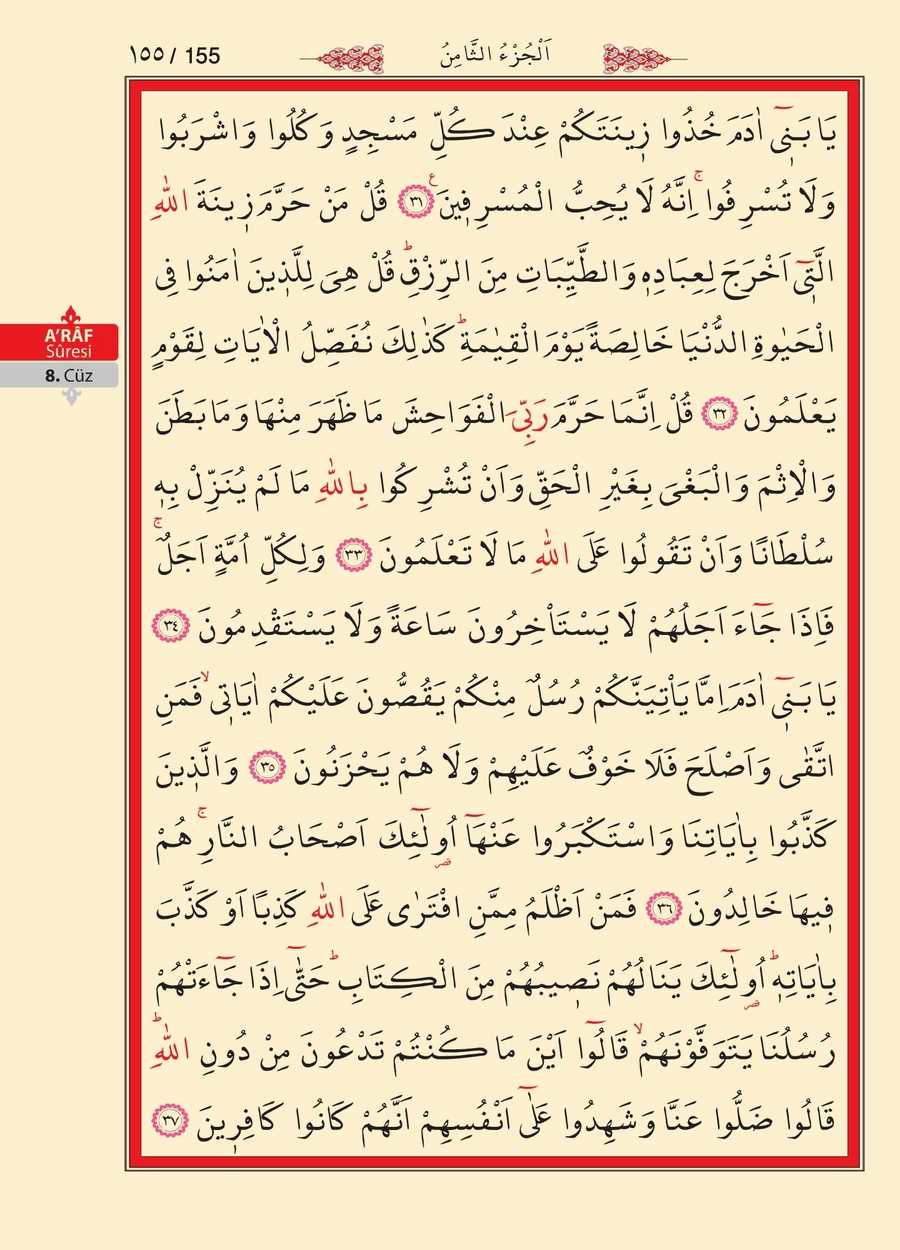 ١٥٥ / 155
اَلْجُزْءُ الثَّامِنُ
A'RÂF
Sûresi
8. Cüz
يَا بَنٖٓي اٰدَمَ خُذُوا زٖينَتَكُمْ عِنْدَ كُلِّ مَسْجِدٍ وَكُلُوا وَاشْرَبُوا
وَلَا تُسْرِفُواۚ اِنَّهُ لَا يُحِبُّ الْمُسْرِفٖينَࣖ ﴿٣١﴾ قُلْ مَنْ حَرَّمَ زٖينَةَ اللّٰهِ
الَّتٖٓي اَخْرَجَ لِعِبَادِهٖ وَالطَّيِّبَاتِ مِنَ الرِّزْقِؕ قُلْ هِيَ لِلَّذٖينَ اٰمَنُوا فِي
الْحَيٰوةِ الدُّنْيَا خَالِصَةً يَوْمَ الْقِيٰمَةِؕ كَذٰلِكَ نُفَصِّلُ الْاٰيَاتِ لِقَوْمٍ
يَعْلَمُونَ ﴿٣٢﴾ قُلْ اِنَّمَا حَرَّمَ رَبِّيَ الْفَوَاحِشَ مَا ظَهَرَ مِنْهَا وَمَا بَطَنَ
وَالْاِثْمَ وَالْبَغْيَ بِغَيْرِ الْحَقِّ وَاَنْ تُشْرِكُوا بِاللّٰهِ مَا لَمْ يُنَزِّلْ بِهٖ
سُلْطَانًا وَاَنْ تَقُولُوا عَلَى اللّٰهِ مَا لَا تَعْلَمُونَ ﴿٣٣﴾ وَلِكُلِّ اُمَّةٍ اَجَلٌۚ
فَاِذَا جَٓاءَ اَجَلُهُمْ لَا يَسْتَاْخِرُونَ سَاعَةً وَلَا يَسْتَقْدِمُونَ ﴿٣٤﴾
يَا بَنٖٓي اٰدَمَ اِمَّا يَاْتِيَنَّكُمْ رُسُلٌ مِنْكُمْ يَقُصُّونَ عَلَيْكُمْ اٰيَاتٖيۙ فَمَنِ
اتَّقٰى وَاَصْلَحَ فَلَا خَوْفٌ عَلَيْهِمْ وَلَا هُمْ يَحْزَنُونَ ﴿٣٥﴾ وَالَّذٖينَ
كَذَّبُوا بِاٰيَاتِنَا وَاسْتَكْبَرُوا عَنْهَٓا اُو۬لٰٓئِكَ اَصْحَابُ النَّارِۚ هُمْ
فٖيهَا خَالِدُونَ ﴿٣٦﴾ فَمَنْ اَظْلَمُ مِمَّنِ افْتَرٰى عَلَى اللّٰهِ كَذِبًا اَوْ كَذَّبَ
بِاٰيَاتِهٖؕ اُو۬لٰٓئِكَ يَنَالُهُمْ نَصٖيبُهُمْ مِنَ الْكِتَابِؕ حَتّٰٓى اِذَا جَٓاءَتْهُمْ
رُسُلُنَا يَتَوَفَّوْنَهُمْۙ قَالُٓوا اَيْنَ مَا كُنْتُمْ تَدْعُونَ مِنْ دُونِ اللّٰهِؕ
قَالُوا ضَلُّوا عَنَّا وَشَهِدُوا عَلٰٓى اَنْفُسِهِمْ اَنَّهُمْ كَانُوا كَافِرٖينَ ﴿٣٧﴾